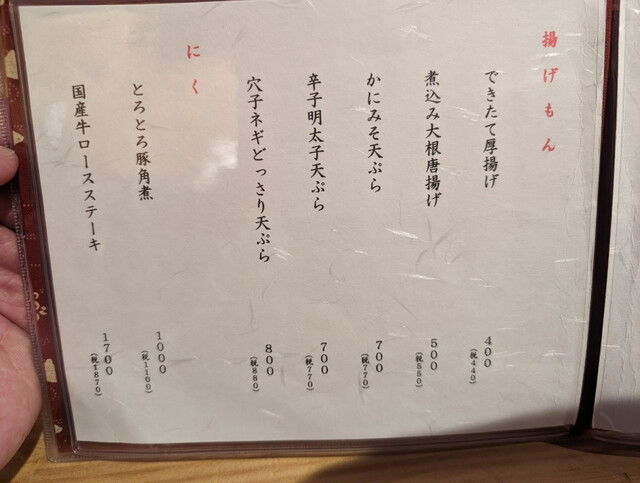 揚げもん
できたて厚揚げ 400 (税440)
煮込み大根唐揚げ 500 (税550)
かにみそ天ぷら 700 (税770)
辛子明太子天ぷら 700 (税770)
穴子ネギどっさり天ぷら 800 (税880)
にく
とろとろ豚角煮 1000 (税1100)
国産牛ロースステーキ 1700 (税1870)